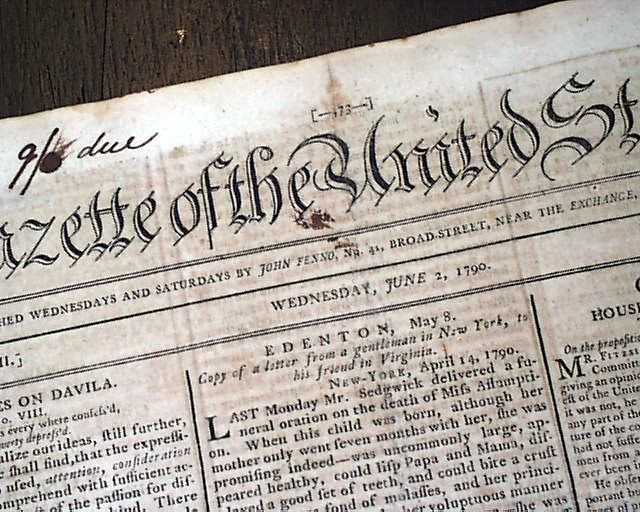 [—473—]
9/ due
azette of the United St
HED WEDNESDAYS AND SATURDAYS BY JOHN FENNO, No. 41, BROAD-STREET, NEAR THE EXCHANGE
WEDNESDAY, JUNE 2, 1790.
II.]
ES ON DAVILA.
O. VIII.
every where confess'd,
verty depress'd.
alize our ideas, still further,
shall find, that the expressi-
used, attention, consideration
mprehend with sufficient ac-
of the passion for dis-
kind. There
EDENTON, May 8.
Copy of a letter from a gentleman in New York, to
his friend in Virginia.
NEW-YORK, April 14, 1790.
LAST Monday Mr. Sedgwick delivered a fu-
neral oration on the death of Miss Assumpti-
on. When this child was born, although her
mother only went seven months with her, she was
promising indeed—was uncommonly large, ap-
peared healthy, could lisp Papa and Mama, dis-
layed a good set of teeth, and could bite a crust
fond of molasses, and her princi-
her voluptuous manner
she was
HOUS
On the propositi
MR. FITZ
Commit
giving an opini
est of the Unit
it was not,
any part of it
ture of the co
had not suffi
men from
ever been
He obse
portant